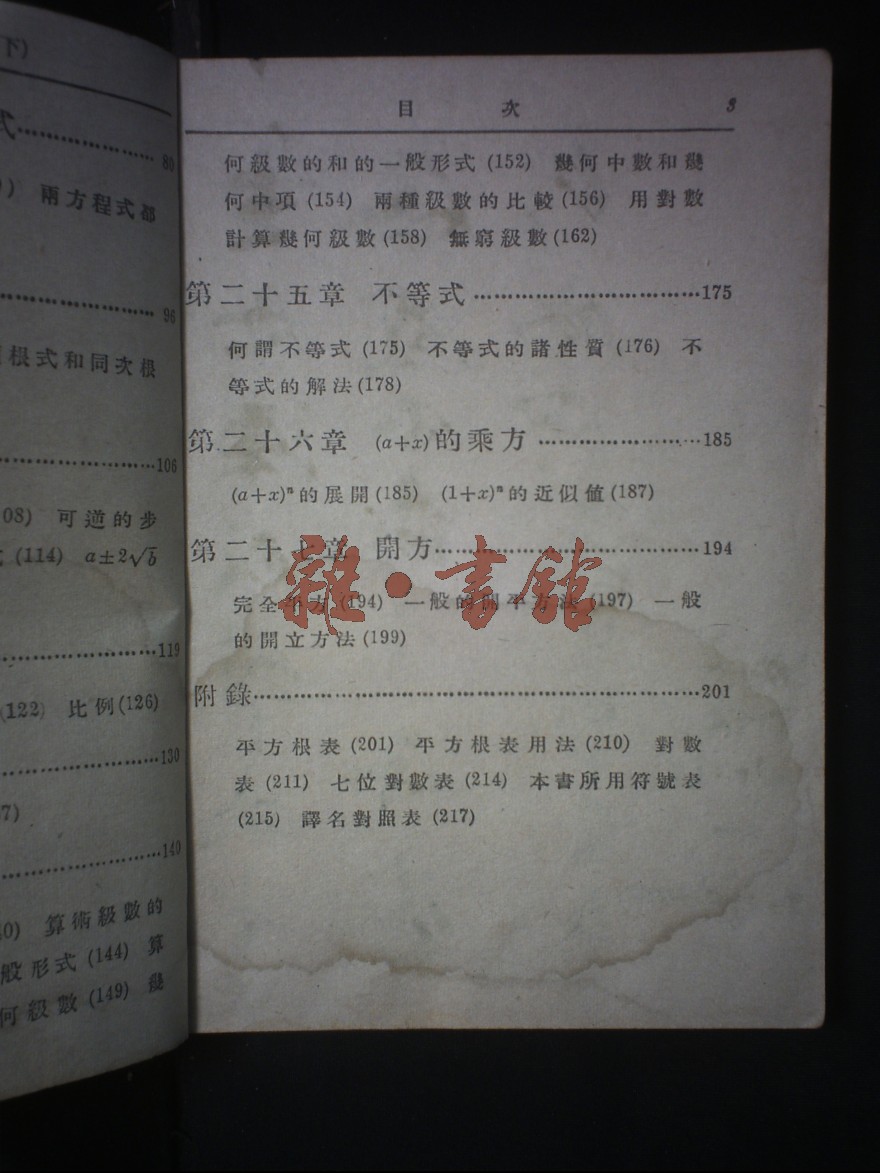 下)
式……80
兩方程式都
……96
根式和同次根
……106
08) 可逆的步
(114) a±2√b
……119
(122) 比例(126)
……130
7)
……140
40) 算術級數的
般形式(144) 算
何級數(149) 幾
目 次 3
何級數的和的一般形式(152) 幾何中數和幾
何中項(154) 兩種級數的比較(156) 用對數
計算幾何級數(158) 無窮級數(162)
第二十五章 不等式……175
何謂不等式(175) 不等式的諸性質(176) 不
等式的解法(178)
第二十六章 (a+x)的乘方……185
(a+x)ⁿ的展開(185) (1+x)ⁿ的近似値(187)
第二十七章 開方……194
完全平方(194) 一般的開平方法(197) 一般
的開立方法(199)
附錄……201
平方根表(201) 平方根表用法(210) 對數
表(211) 七位對數表(214) 本書所用符號表
(215) 譯名對照表(217)
雜·書館